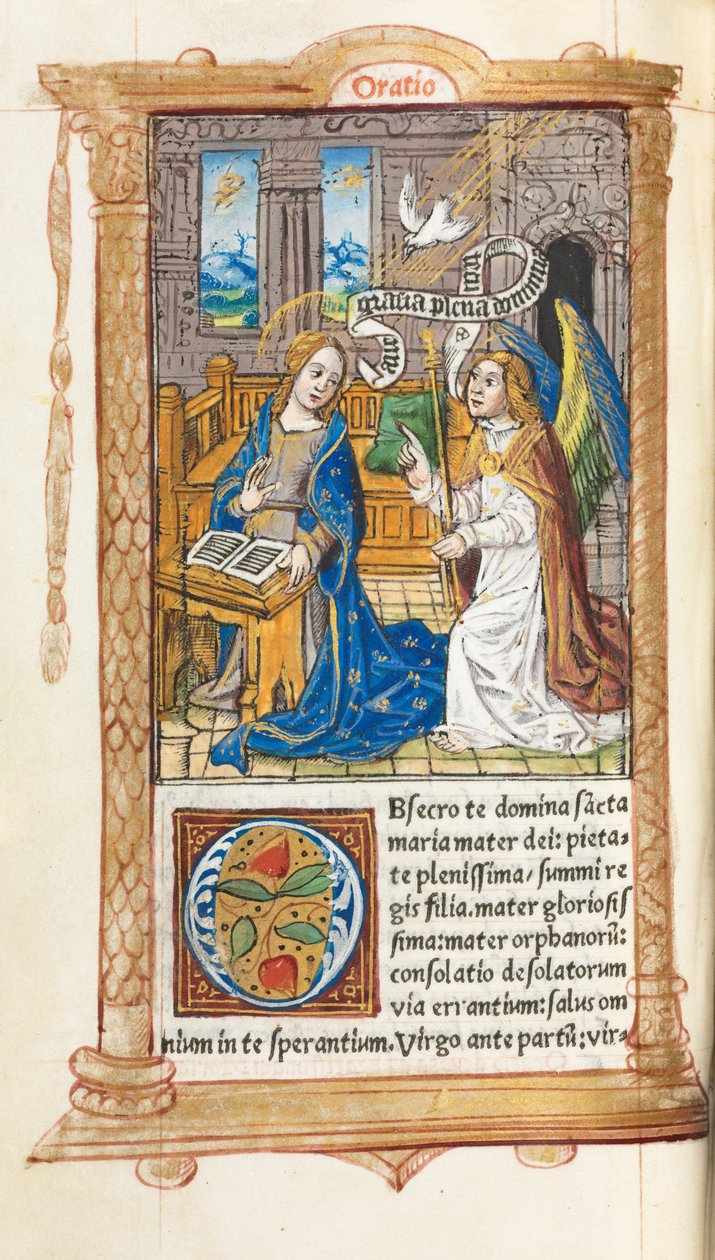 Oratio
aue gratia plena dominus tecū
OBſecro te domina ſācta
maria mater dei: pieta-
te pleniſſima/ ſummi re
gis filia. mater glorioſiſ
ſima: mater orphanorū:
conſolatio deſolatorum
via errantium: ſalus om
nium in te ſperantium. Virgo ante partū: vir-